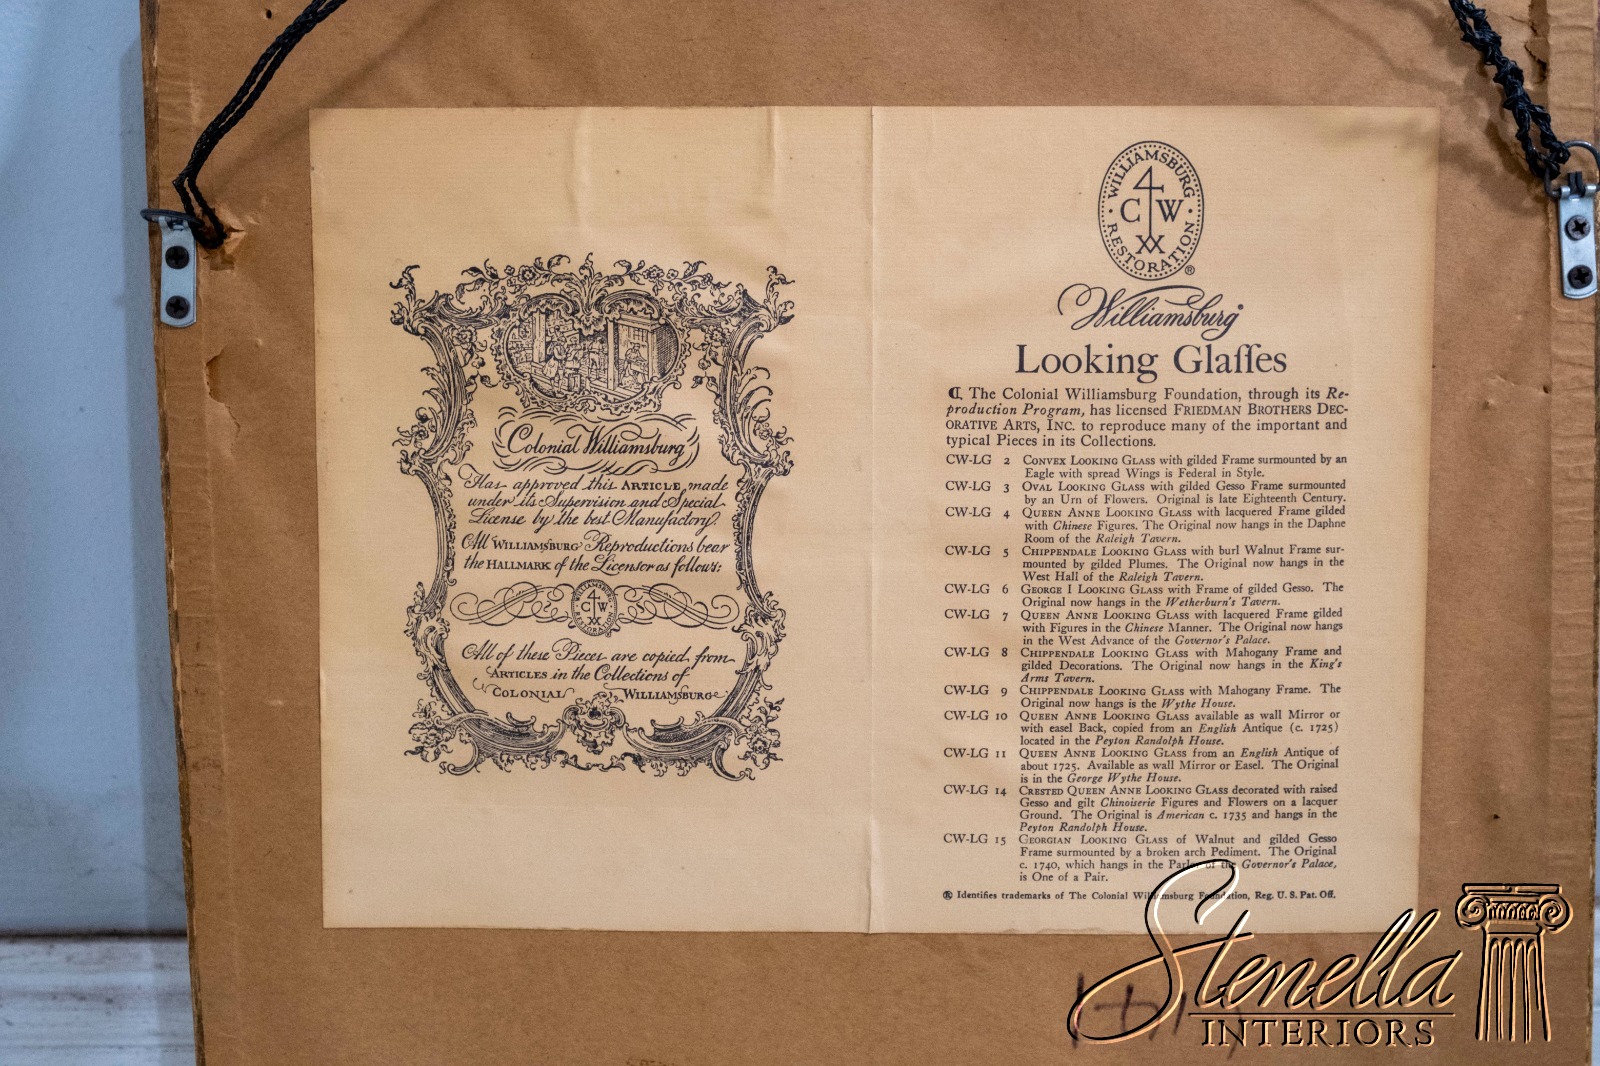 Colonial Williamsburg
Has approved this ARTICLE, made
under its Supervision and Special
License by the best Manufactory.
All WILLIAMSBURG Reproductions bear
the HALLMARK of the Licensor as follows:
WILLIAMSBURG
C W
RESTORATION
All of these Pieces are copied from
ARTICLES in the Collections of
COLONIAL WILLIAMSBURG
WILLIAMSBURG
C W
RESTORATION
®
Williamsburg®
Looking Glaſſes
¶ The Colonial Williamsburg Foundation, through its Re-
production Program, has licensed FRIEDMAN BROTHERS DEC-
ORATIVE ARTS, INC. to reproduce many of the important and
typical Pieces in its Collections.
CW-LG 2 CONVEX LOOKING GLASS with gilded Frame surmounted by an
Eagle with spread Wings is Federal in Style.
CW-LG 3 OVAL LOOKING GLASS with gilded Gesso Frame surmounted
by an Urn of Flowers. Original is late Eighteenth Century.
CW-LG 4 QUEEN ANNE LOOKING GLASS with lacquered Frame gilded
with Chinese Figures. The Original now hangs in the Daphne
Room of the Raleigh Tavern.
CW-LG 5 CHIPPENDALE LOOKING GLASS with burl Walnut Frame sur-
mounted by gilded Plumes. The Original now hangs in the
West Hall of the Raleigh Tavern.
CW-LG 6 GEORGE I LOOKING GLASS with Frame of gilded Gesso. The
Original now hangs in the Wetherburn's Tavern.
CW-LG 7 QUEEN ANNE LOOKING GLASS with lacquered Frame gilded
with Figures in the Chinese Manner. The Original now hangs
in the West Advance of the Governor's Palace.
CW-LG 8 CHIPPENDALE LOOKING GLASS with Mahogany Frame and
gilded Decorations. The Original now hangs in the King's
Arms Tavern.
CW-LG 9 CHIPPENDALE LOOKING GLASS with Mahogany Frame. The
Original now hangs is the Wythe House.
CW-LG 10 QUEEN ANNE LOOKING GLASS available as wall Mirror or
with easel Back, copied from an English Antique (c. 1725)
located in the Peyton Randolph House.
CW-LG 11 QUEEN ANNE LOOKING GLASS from an English Antique of
about 1725. Available as wall Mirror or Easel. The Original
is in the George Wythe House.
CW-LG 14 CRESTED QUEEN ANNE LOOKING GLASS decorated with raised
Gesso and gilt Chinoiserie Figures and Flowers on a lacquer
Ground. The Original is American c. 1735 and hangs in the
Peyton Randolph House.
CW-LG 15 GEORGIAN LOOKING GLASS of Walnut and gilded Gesso
Frame surmounted by a broken arch Pediment. The Original
c. 1740, which hangs in the Parlor of the Governor's Palace,
is One of a Pair.
® Identifies trademarks of The Colonial Williamsburg Foundation, Reg. U. S. Pat. Off.
Stenella
INTERIORS